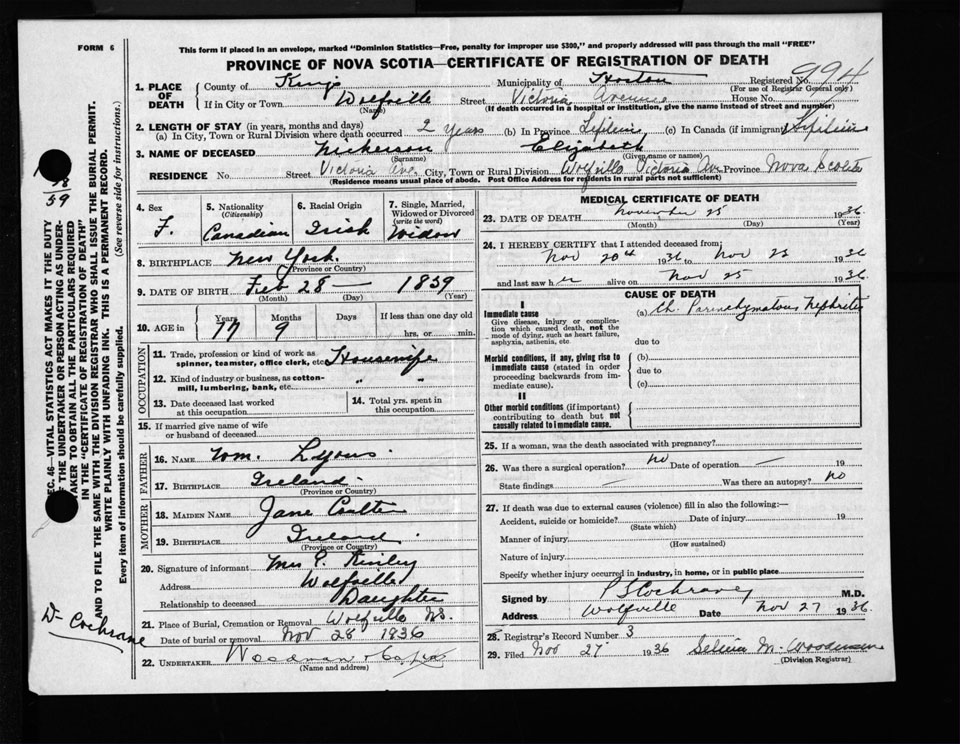 FORM 6
This form if placed in an envelope, marked "Dominion Statistics—Free, penalty for improper use $300," and properly addressed will pass through the mail "FREE"
PROVINCE OF NOVA SCOTIA—CERTIFICATE OF REGISTRATION OF DEATH
1. PLACE OF DEATH
County of Kings Municipality of Horton Registered No. 994
(For use of Registrar General only)
If in City or Town Wolfville Street Victoria Avenue House No.
(Name) (If death occurred in a hospital or institution, give the name instead of street and number)
2. LENGTH OF STAY (in years, months and days)
(a) In City, Town or Rural Division where death occurred 2 years (b) In Province Lifetime (c) In Canada (if immigrant) Lifetime
3. NAME OF DECEASED Nickerson Elizabeth
(Surname) (Given name or names)
RESIDENCE No. Street Victoria Ave. City, Town or Rural Division Wolfville Victoria Ave Province Nova Scotia
(Residence means usual place of abode. Post Office Address for residents in rural parts not sufficient)
4. Sex F.
5. Nationality (Citizenship) Canadian
6. Racial Origin Irish
7. Single, Married, Widowed or Divorced (write the word) Widow
8. BIRTHPLACE New York.
(Province or Country)
9. DATE OF BIRTH Feb 28 — 1859
(Month) (Day) (Year)
10. AGE in Years Months Days If less than one day old
77 9 hrs. or min.
OCCUPATION
11. Trade, profession or kind of work as spinner, teamster, office clerk, etc. Housewife
12. Kind of industry or business, as cotton-mill, lumbering, bank, etc. " "
13. Date deceased last worked at this occupation
14. Total yrs. spent in this occupation
15. If married give name of wife or husband of deceased
FATHER
16. NAME Wm. Lyons.
17. BIRTHPLACE Ireland
(Province or Country)
MOTHER
18. MAIDEN NAME Jane Coulter
19. BIRTHPLACE Ireland
(Province or Country)
20. Signature of informant Mrs
Address Wolfville
Relationship to deceased Daughter
21. Place of Burial, Cremation or Removal Wolfville NS.
Date of burial or removal Nov 28 1836
22. UNDERTAKER Woodman
(Name and address)
MEDICAL CERTIFICATE OF DEATH
23. DATE OF DEATH November 25 1936
(Month) (Day) (Year)
24. I HEREBY CERTIFY that I attended deceased from:
Nov 20th 1936 to Nov 25 1936
and last saw her alive on Nov 25 1936
CAUSE OF DEATH
I
Immediate cause
Give disease, injury or complication which caused death, not the mode of dying, such as heart failure, asphyxia, asthenia, etc.
(a) Ch. Parenchymatous Nephritis
due to
Morbid conditions, if any, giving rise to immediate cause (stated in order proceeding backwards from immediate cause).
(b)
due to
(c)
II
Other morbid conditions (if important) contributing to death but not causally related to immediate cause.
25. If a woman, was the death associated with pregnancy?
26. Was there a surgical operation? no Date of operation — 19
State findings — Was there an autopsy? no
27. If death was due to external causes (violence) fill in also the following:—
Accident, suicide or homicide? Date of injury 19
(State which)
Manner of injury
(How sustained)
Nature of injury
Specify whether injury occurred in industry, in home, or in public place
Signed by P S Cochrane M.D.
Address Wolfville Date Nov 27 1936.
28. Registrar's Record Number 3
29. Filed Nov 27 1936 M. Woodman
(Division Registrar)
SEC. 46—VITAL STATISTICS ACT MAKES IT THE DUTY
OF THE UNDERTAKER OR PERSON ACTING AS UNDER-
TAKER TO OBTAIN ALL THE PARTICULARS REQUIRED
IN THE "CERTIFICATE OF REGISTRATION OF DEATH"
AND TO FILE THE SAME WITH THE DIVISION REGISTRAR WHO SHALL ISSUE THE BURIAL PERMIT.
WRITE PLAINLY WITH UNFADING INK. THIS IS A PERMANENT RECORD.
Every item of information should be carefully supplied. (See reverse side for instructions.)
59
Dr Cochrane